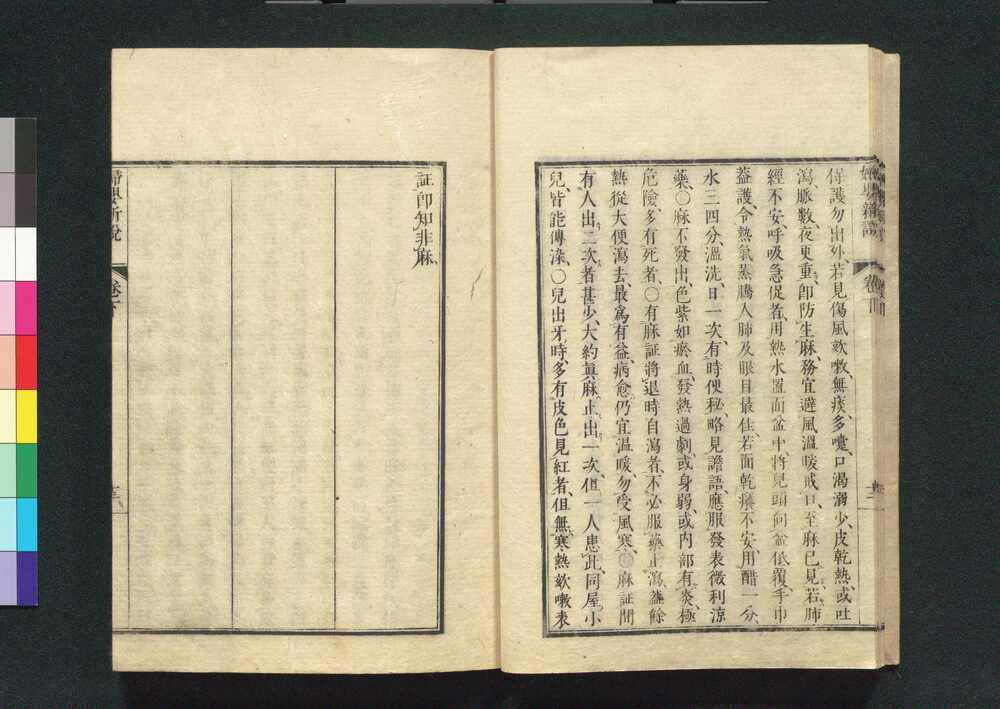 保護勿出外、若見傷風欬嗽無痰、多嚏、口渴溺少、皮乾熱、或吐
瀉、脈數、夜更重、卽防生麻、務宜避風溫暖戒口、至麻已見、若肺
經不安、呼吸急促者、用熱水置面盆中、將兒頭向盆低覆、手巾
蓋護、令熱氣蒸騰人肺及眼目最佳、若面乾癢不安、用醋一分、
水三四分、溫洗、日一次、有時便秘、略見譫語、應服發表微利涼
藥、〇麻不發出、色紫如瘀血、發熱過劇、或身弱、或內部有炎、極
危險、多有死者、〇有麻証將退時自瀉者、不必服藥止瀉、蓋餘
熱從大便瀉去、最爲有益、病愈仍宜溫暖、勿受風寒、〇麻証間
有人出二次者甚少、大約眞麻止出一次、但一人患此、同屋小
兒皆能傳染、〇兒出牙時、多有皮色見紅者、但無寒熱欬嗽表
証卽知非麻、
婦嬰新說
卷下